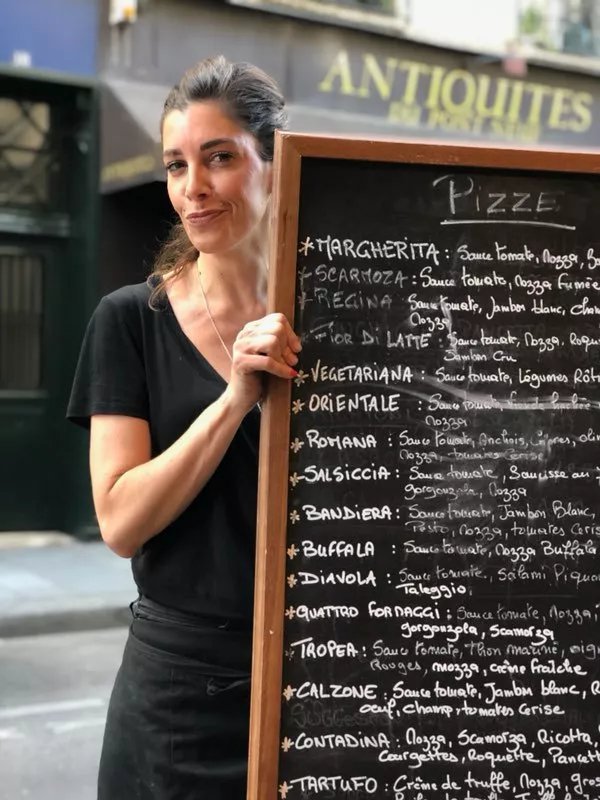 ANTIQUITES
DU PONT NEUF
PIZZE
*MARGHERITA : Sauce tomate, Mozza, Ba
*SCARMOZA : Sauce tomate, Mozza Fumée
*REGINA Sauce tomate, Jambon blanc, cham
Mozza
*FIOR DI LATTE : Sauce tomate, Mozza, Roqu
Jambon Cru
*VEGETARIANA : Sauce tomate, Légumes Rôti
*ORIENTALE : Sauce tomate, hachée
Mozza
*ROMANA : Sauce tomate, Anchois, Câpres, oliv
Mozza, tomates Cerise
*SALSICCIA : Sauce tomate, Saucisse au
gorgonzola, Mozza
*BANDIERA : Sauce tomate, Jambon Blanc,
Pesto, Mozza, tomates Ceris
*BUFFALA : Sauce tomate, Mozza Buffala
*DIAVOLA : Sauce tomate, Salami Piquan
Taleggio,
*QUATTRO FORMAGGI : Sauce tomate, Mozza,
gorgonzola, Scamorza
*TROPEA : Sauce tomate, thon mariné, oign
Rouges, mozza, crème fraîche
*CALZONE : Sauce tomate, Jambon blanc, R
oeuf, champ, tomates Cerise
*CONTADINA : Mozza, Scamorza, Ricotta,
Courgettes, Roquette, Pancett
*TARTUFO : Crème de truffe, Mozza, gros